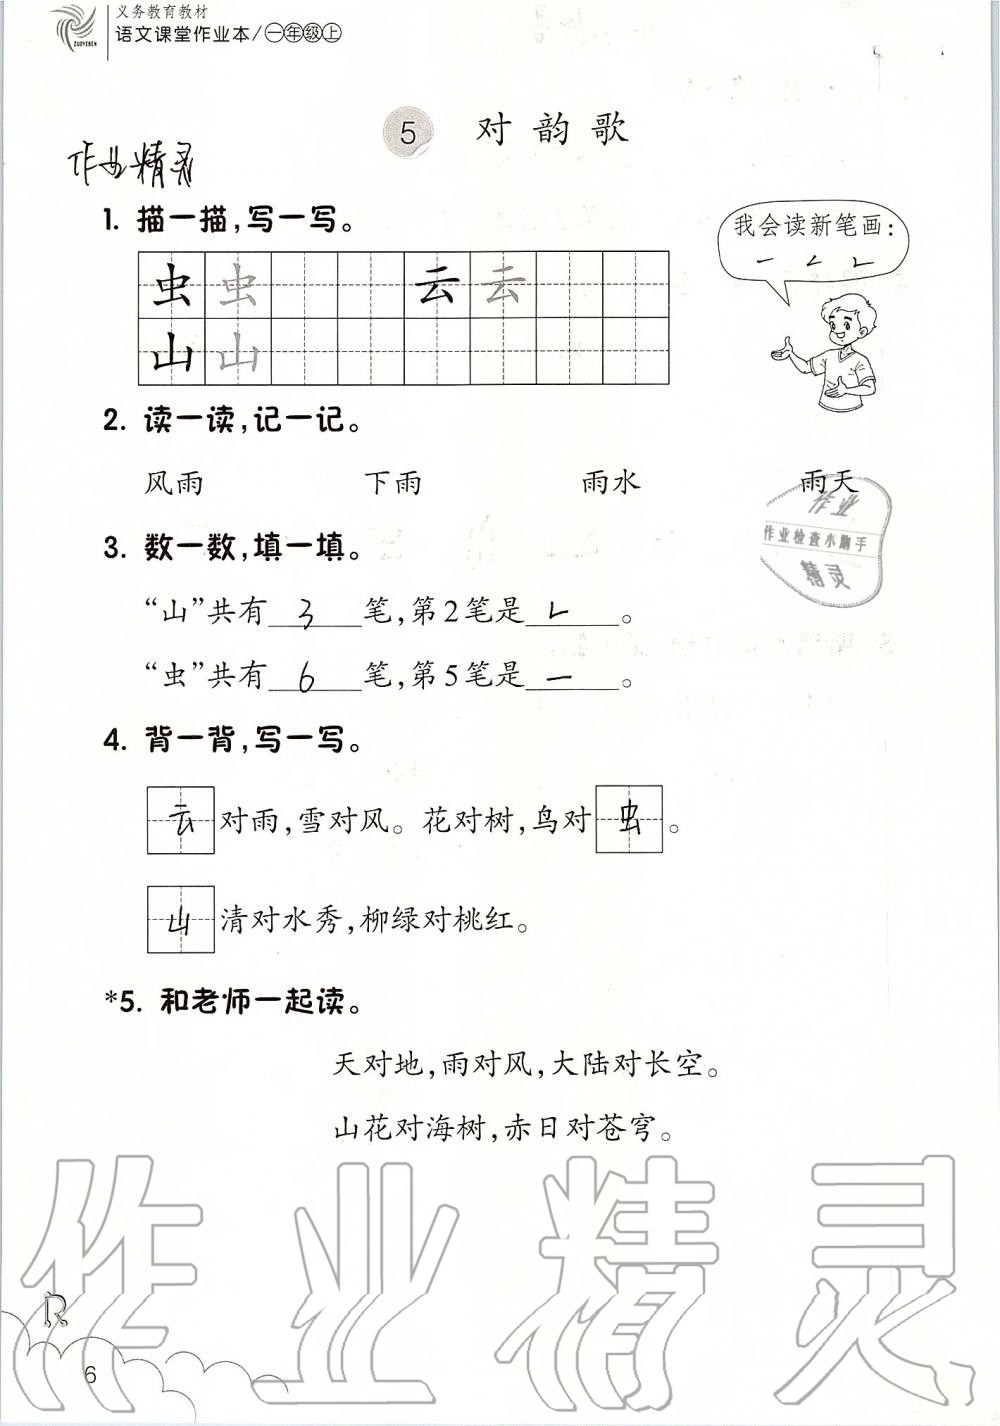 义务教育教材
语文课堂作业本/一年级上
ZUOYEBEN
5 对韵歌
作业精灵
1. 描一描,写一写。
我会读新笔画:
虫 虫 云 云
山 山
2. 读一读,记一记。
风雨 下雨 雨水 雨天
作业
作业检查小助手
精灵
3. 数一数,填一填。
“山”共有 3 笔,第2笔是 ㄥ 。
“虫”共有 6 笔,第5笔是 一 。
4. 背一背,写一写。
云对雨,雪对风。花对树,鸟对虫。
山清对水秀,柳绿对桃红。
*5. 和老师一起读。
天对地,雨对风,大陆对长空。
山花对海树,赤日对苍穹。
作业精灵
R
6